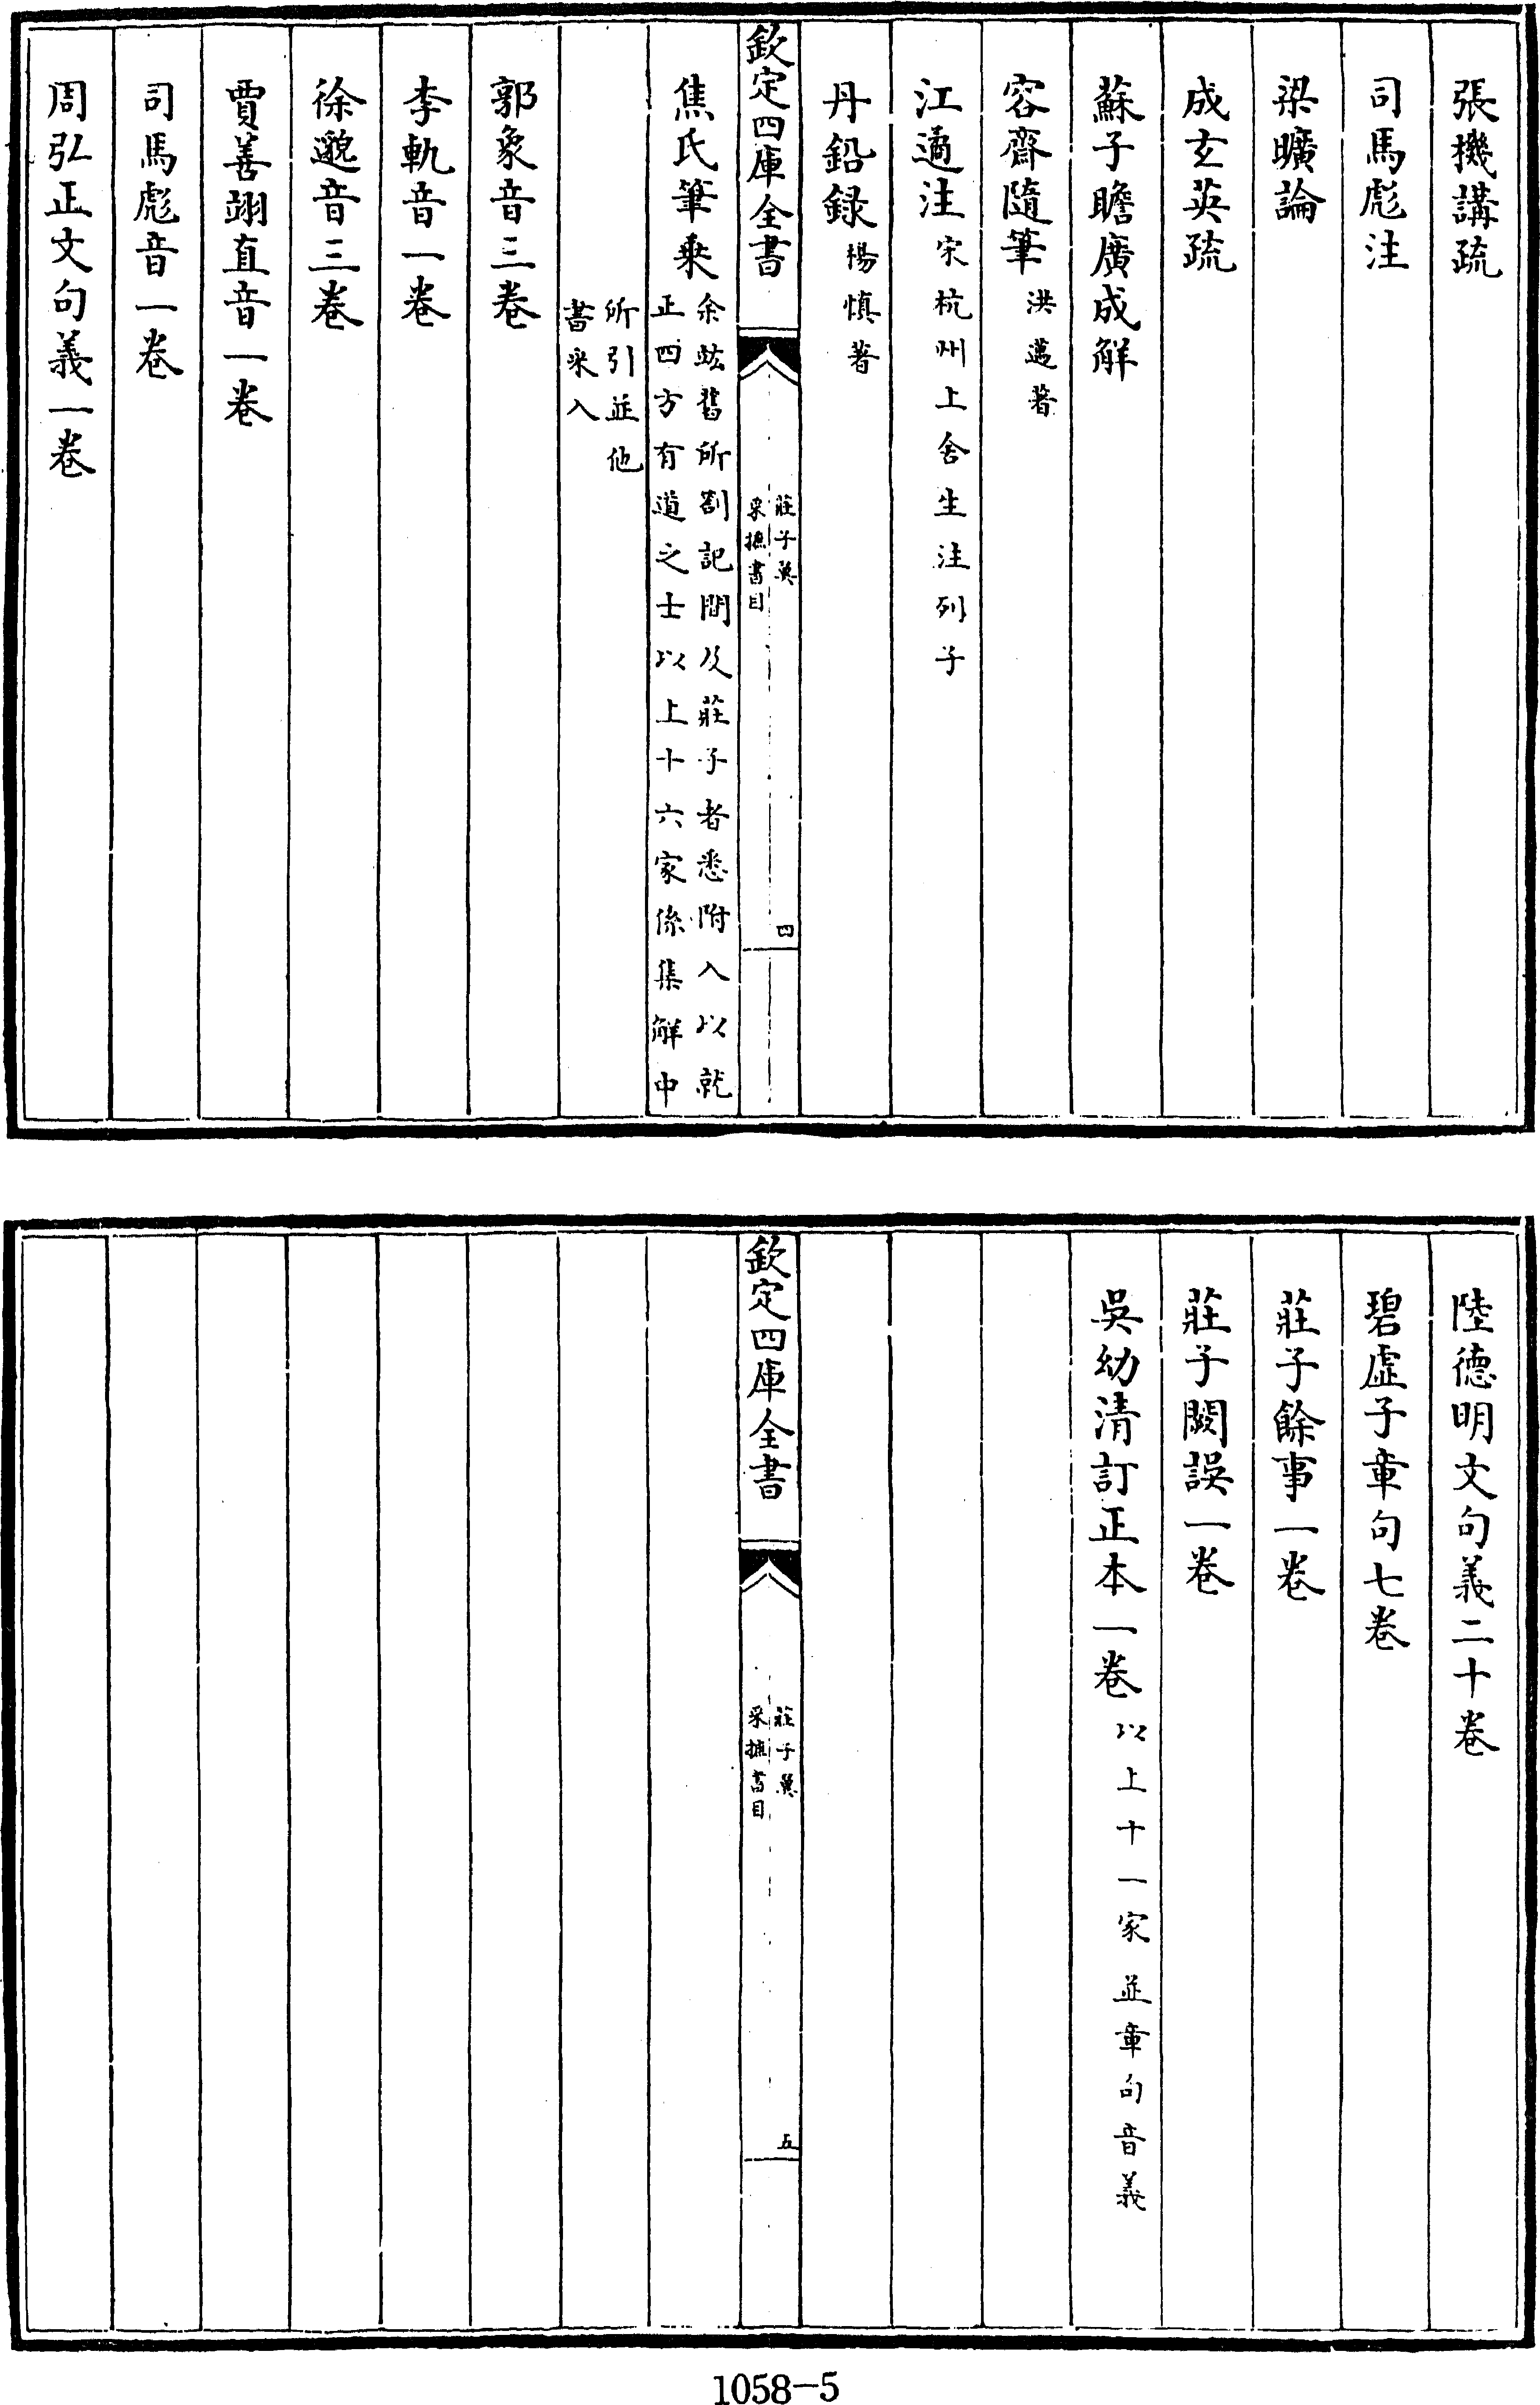 張機講疏
司馬彪注
梁曠論
成玄英疏
蘇子瞻廣成解
容齋隨筆 洪邁著
江遹注 宋杭州上舍生注列子
丹鉛録 楊慎著
欽定四庫全書
莊子翼
采摭書目
四
焦氏筆乗 余竑舊所劄記間及莊子者悉附入以就
正四方有道之士以上十六家係集解中
所引並他
書采入
郭象音三卷
李軌音一卷
徐邈音三卷
賈善翊直音一卷
司馬彪音一卷
周弘正文句義一卷
陸德明文句義二十卷
碧虛子章句七卷
莊子餘事一卷
莊子闕誤一卷
吳幼清訂正本一卷 以上十一家並章句音義
欽定四庫全書
莊子翼
采摭書目
五
1058-5